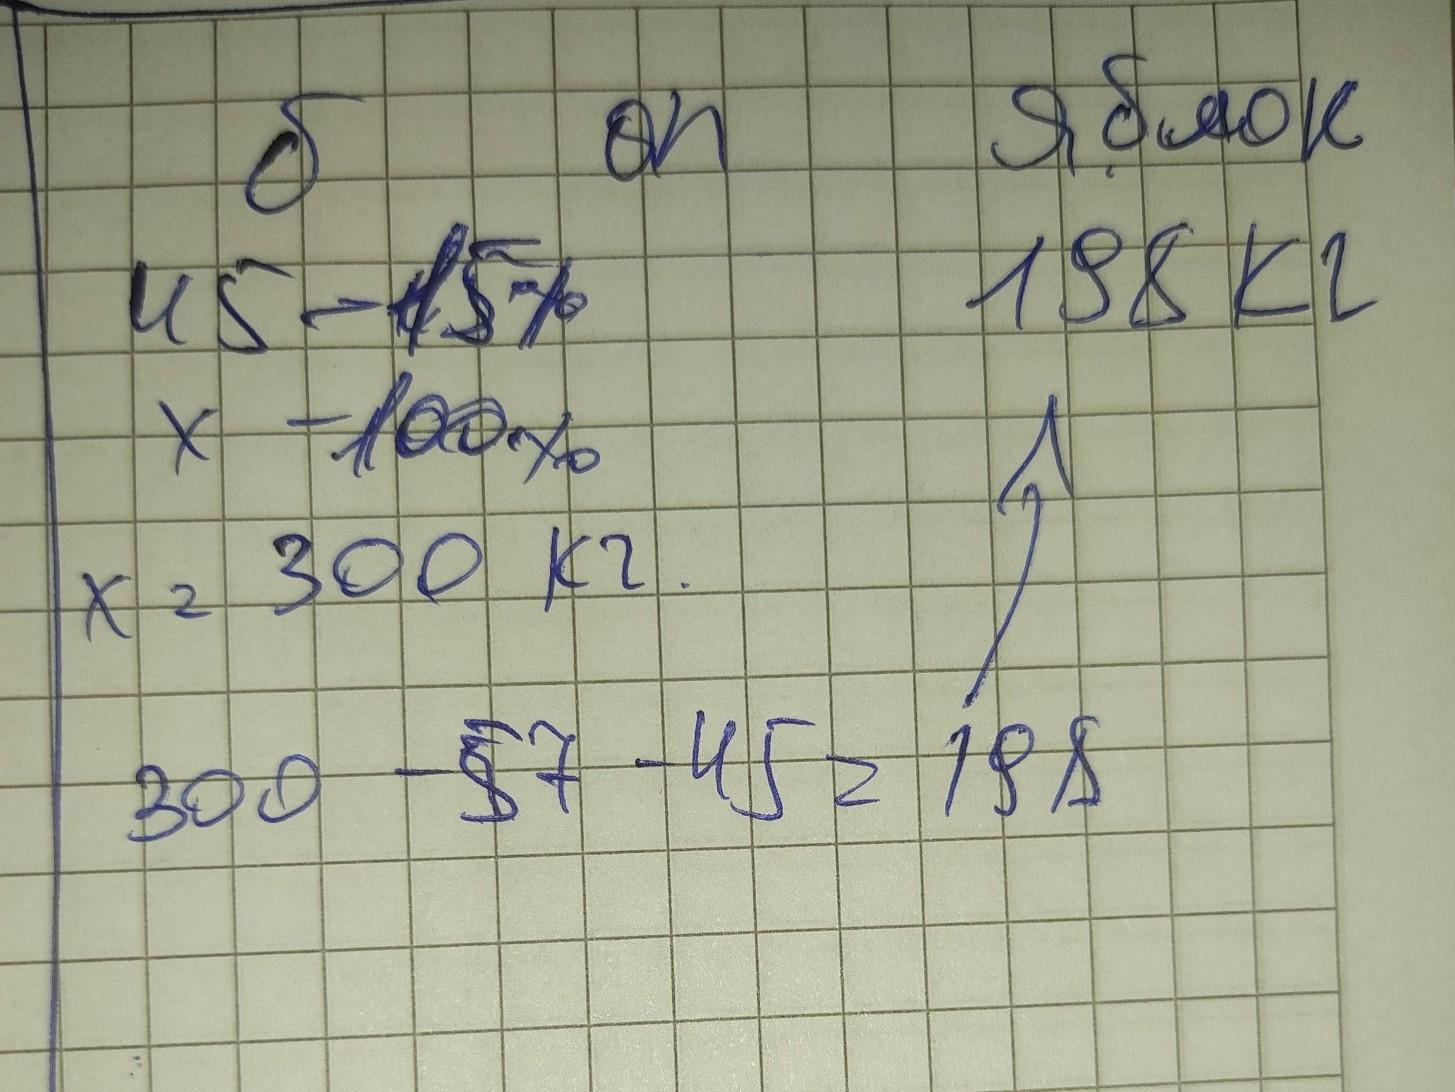 б ап яблок
45 - 15% 198 кг
х - 100%
х = 300 кг.
300 - 57 - 45 = 198